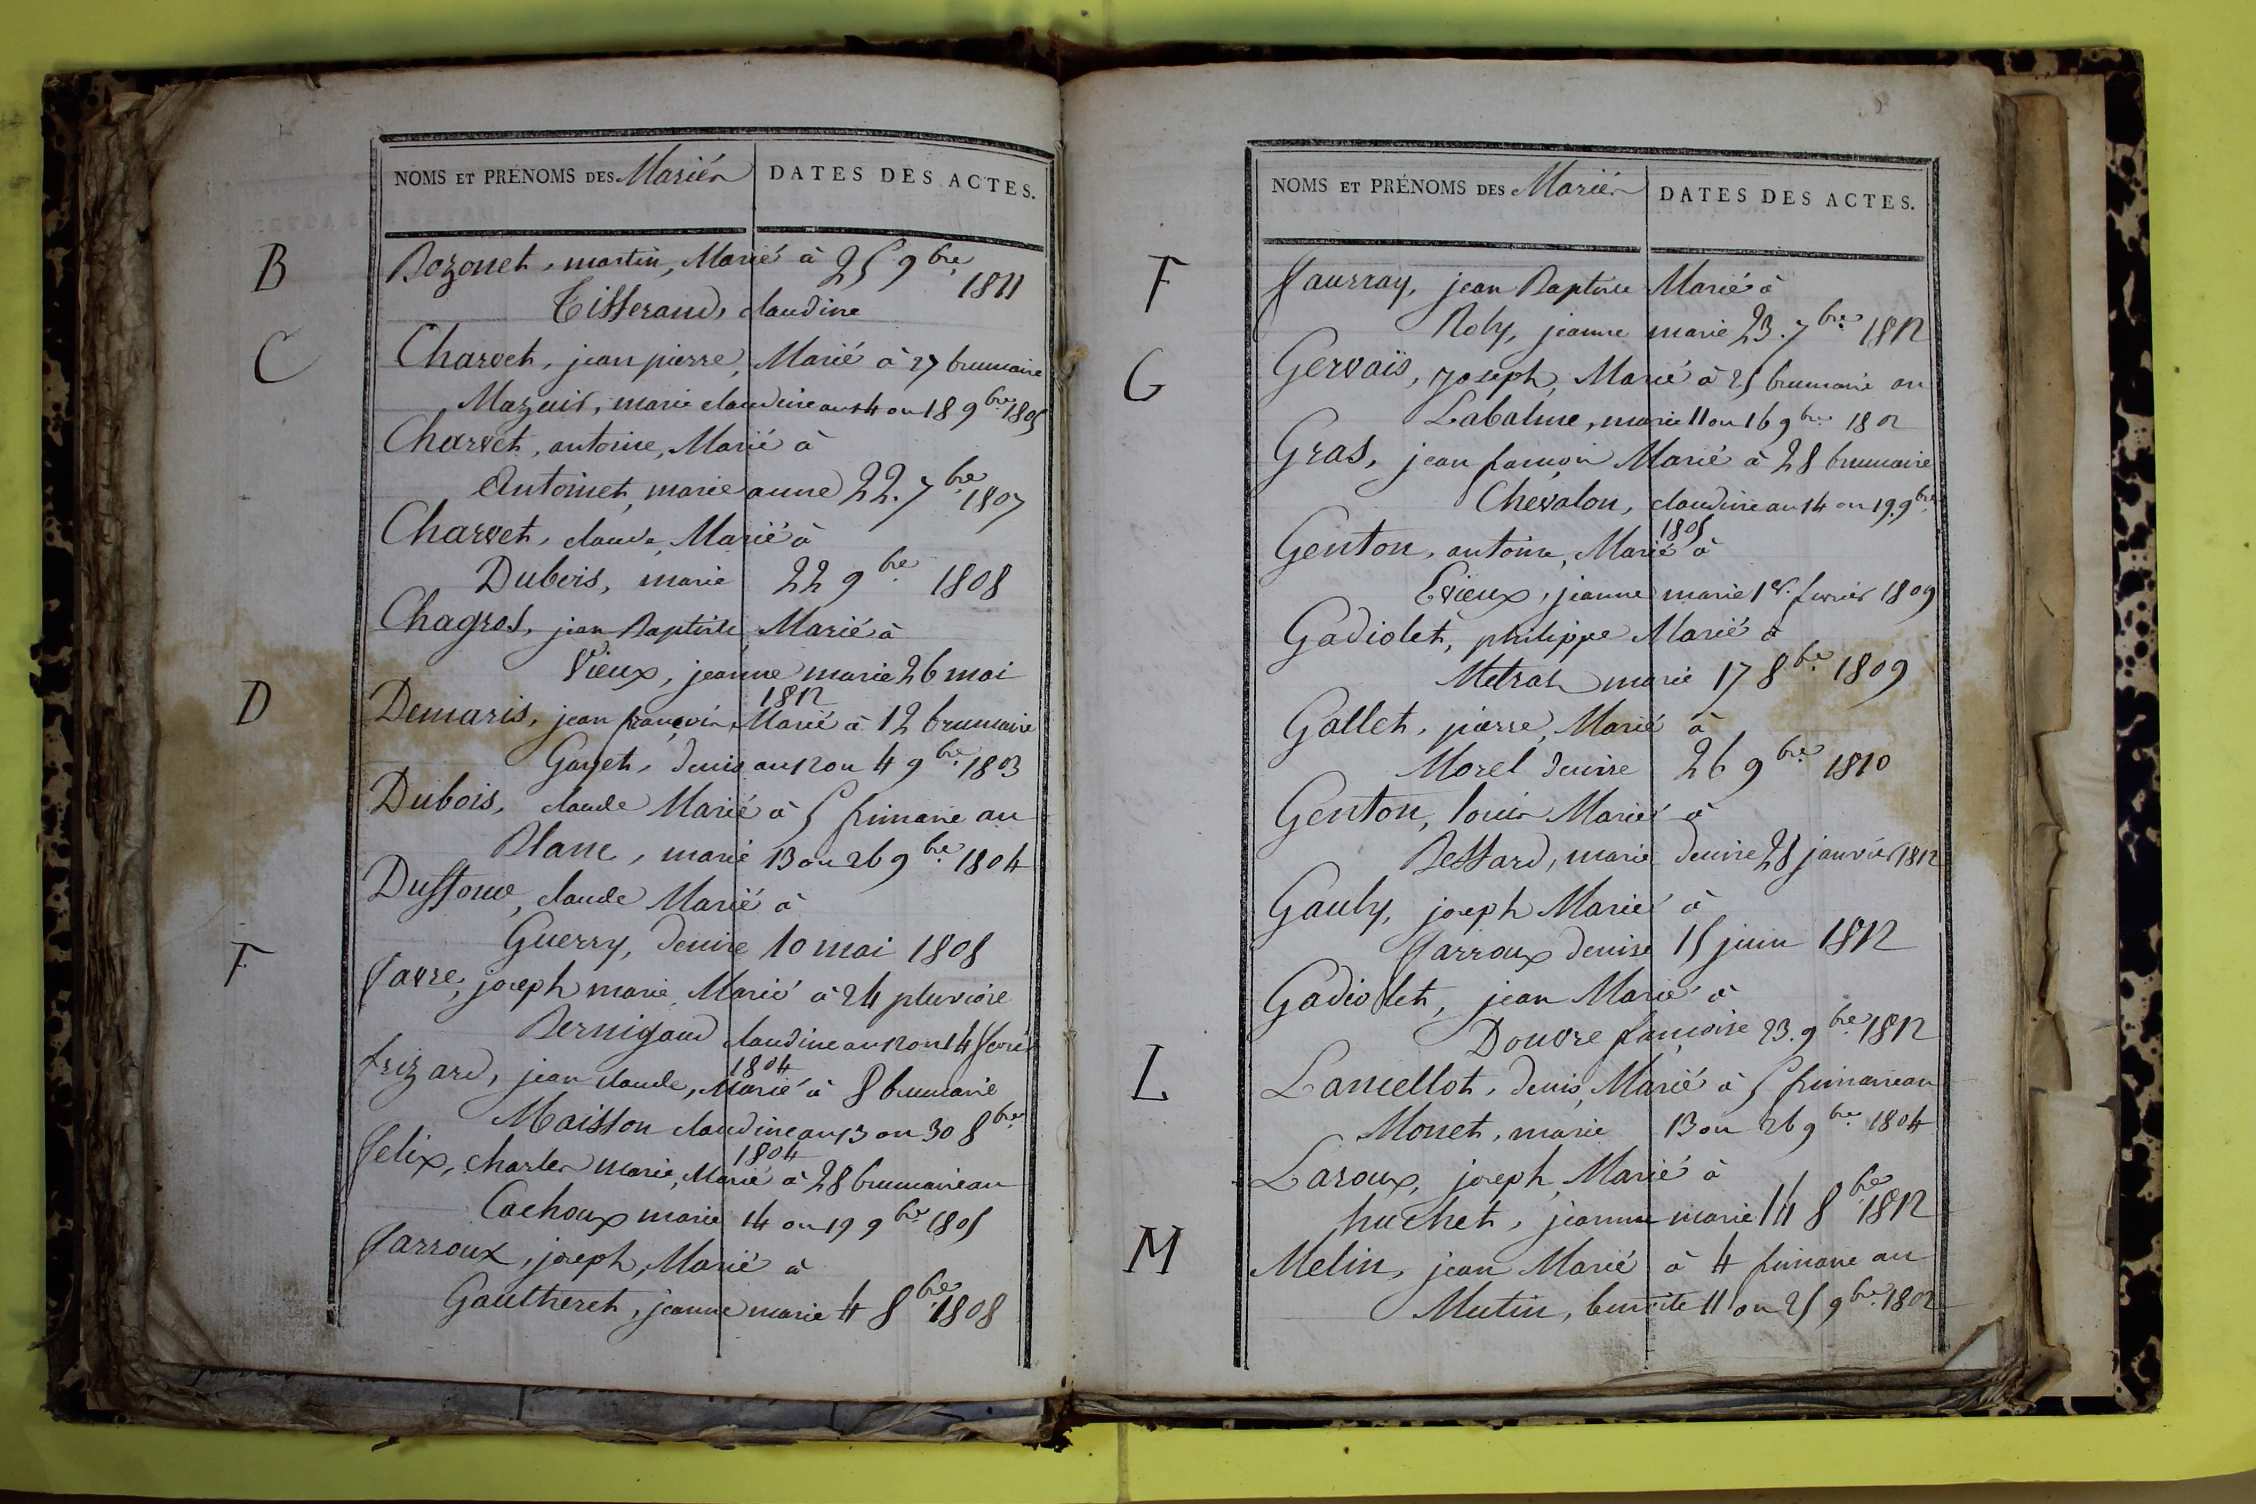 NOMS ET PRÉNOMS DES Mariés
DATES DES ACTES.
B
Bozonet, martin, Marié à 25 9bre 1811
Tisserand, claudine
C
Charvet, jean pierre, Marié à 27 brumaire
Mazuir, marie claudine an 14 ou 18 9bre 1805
Charvet, antoine, Marié à
Antoinet, marie anne 22. 7bre 1807
Charvet, claude, Marié à
Dubois, marie 22 9bre 1808
Chagros, jean Baptiste, Marié à
Vieux, jeanne marie 26 mai
1812
D
Demaris, jean françois, Marié à 12 brumaire
Gayet, denise an 12 ou 4 9bre 1803
Dubois, claude Marié à 5 frimaire an
Blanc, marie 13 ou 26 9bre 1804
claude Marié à
Guerry, denise 10 mai 1808
F
favre, joseph marie, Marié à 24 pluviose
Bernigaud claudine an 12 ou 14 fevrier
1804
frizard, jean claude, Marié à 8 brumaire
Maisson claudine an 13 ou 30 8bre
1804
felix, charles marie, Marié à 28 brumaire an
Cachoux marie 14 ou 19 9bre 1805
farroux, joseph, Marié à
Gautheret, jeanne marie 4 8bre 1808
NOMS ET PRÉNOMS DES Mariés
DATES DES ACTES.
F
faurray, jean Baptiste Marié à
Roby, jeanne marie 23. 7bre 1812
G
Gervais, joseph, Marié à 25 brumaire an
Labalme, marie 11 ou 16 9bre 1802
Gras, jean françois Marié à 28 brumaire
Chevalon, claudine an 14 ou 19. 9bre
1805
Genton, antoine, Marié à
Evieux, jeanne marie 1er. fevrier 1809
Gadiolet, philippe Marié à
Metrat marie 17 8bre 1809
Gallet, pierre, Marié à
Morel denise 26 9bre 1810
Genton, louis Marié à
Bessard, marie denise 28 janvier 1812
Gauly, joseph Marié à
farroux denise 15 juin 1812
Gadiolet, jean Marié à
Douvre françoise 23. 9bre 1812
L
Lancellot, denis, Marié à 5 frimaire an
Monet, marie 13 ou 26 9bre 1804
Laroux, joseph, Marié à
huchet, jeanne marie 14 8bre 1812
M
Melin, jean Marié à 4 frimaire an
Mutin, benoite 11 ou 25 9bre 1802